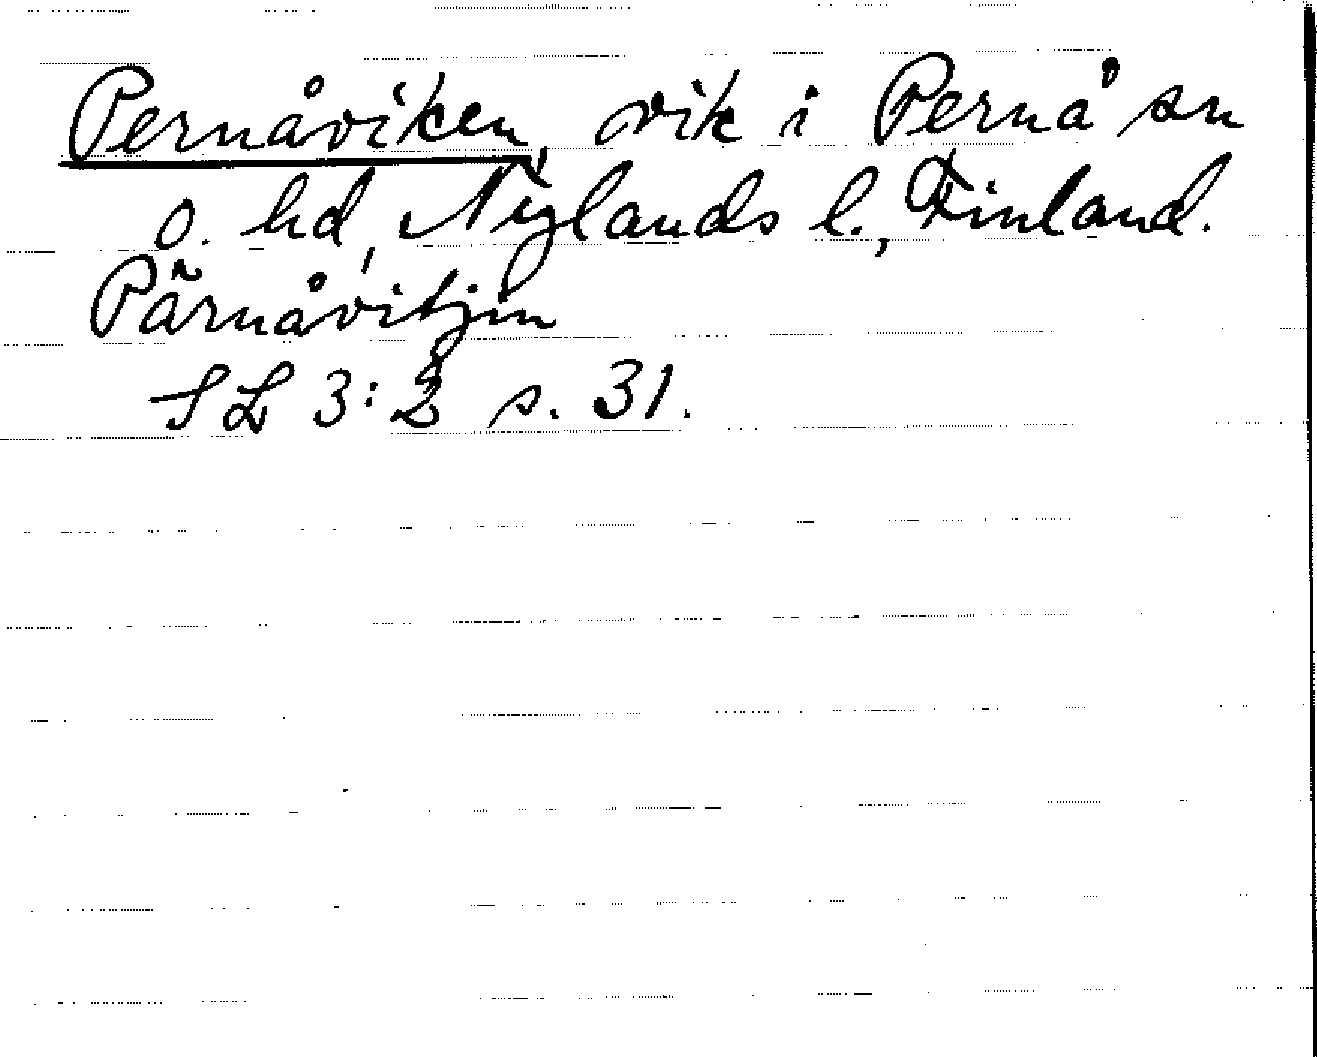 Pernåviken, vik i Pernå sn
o. hd, Nylands l., Finland.
Pärnåvitjin
SL 3:2 s. 31.